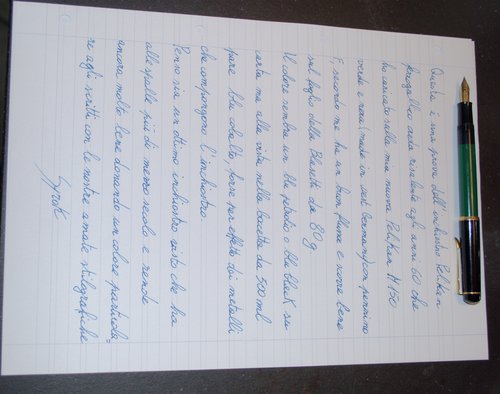 Questa è una prova dell'inchiostro Pelikan
acida risalente agli anni 60 che
ho caricato sulla mia nuova Pelikan M150
verde e nera (made in west Germany) con pennino
F, secondo me ha un buon flusso e scorre bene
sul foglio della Blasetti da 80 g.
Il colore sembra un blu petrolio o blu black su
carta ma alla vista nella boccetta da 500 ml
pare blu cobalto forse per effetto dei metalli
che compongono l'inchiostro.
Penso sia un ottimo inchiostro visto che ha
alle spalle più di mezzo secolo e rende
ancora molto bene donando un colore particola=
re agli scritti con le nostre amate stilografiche